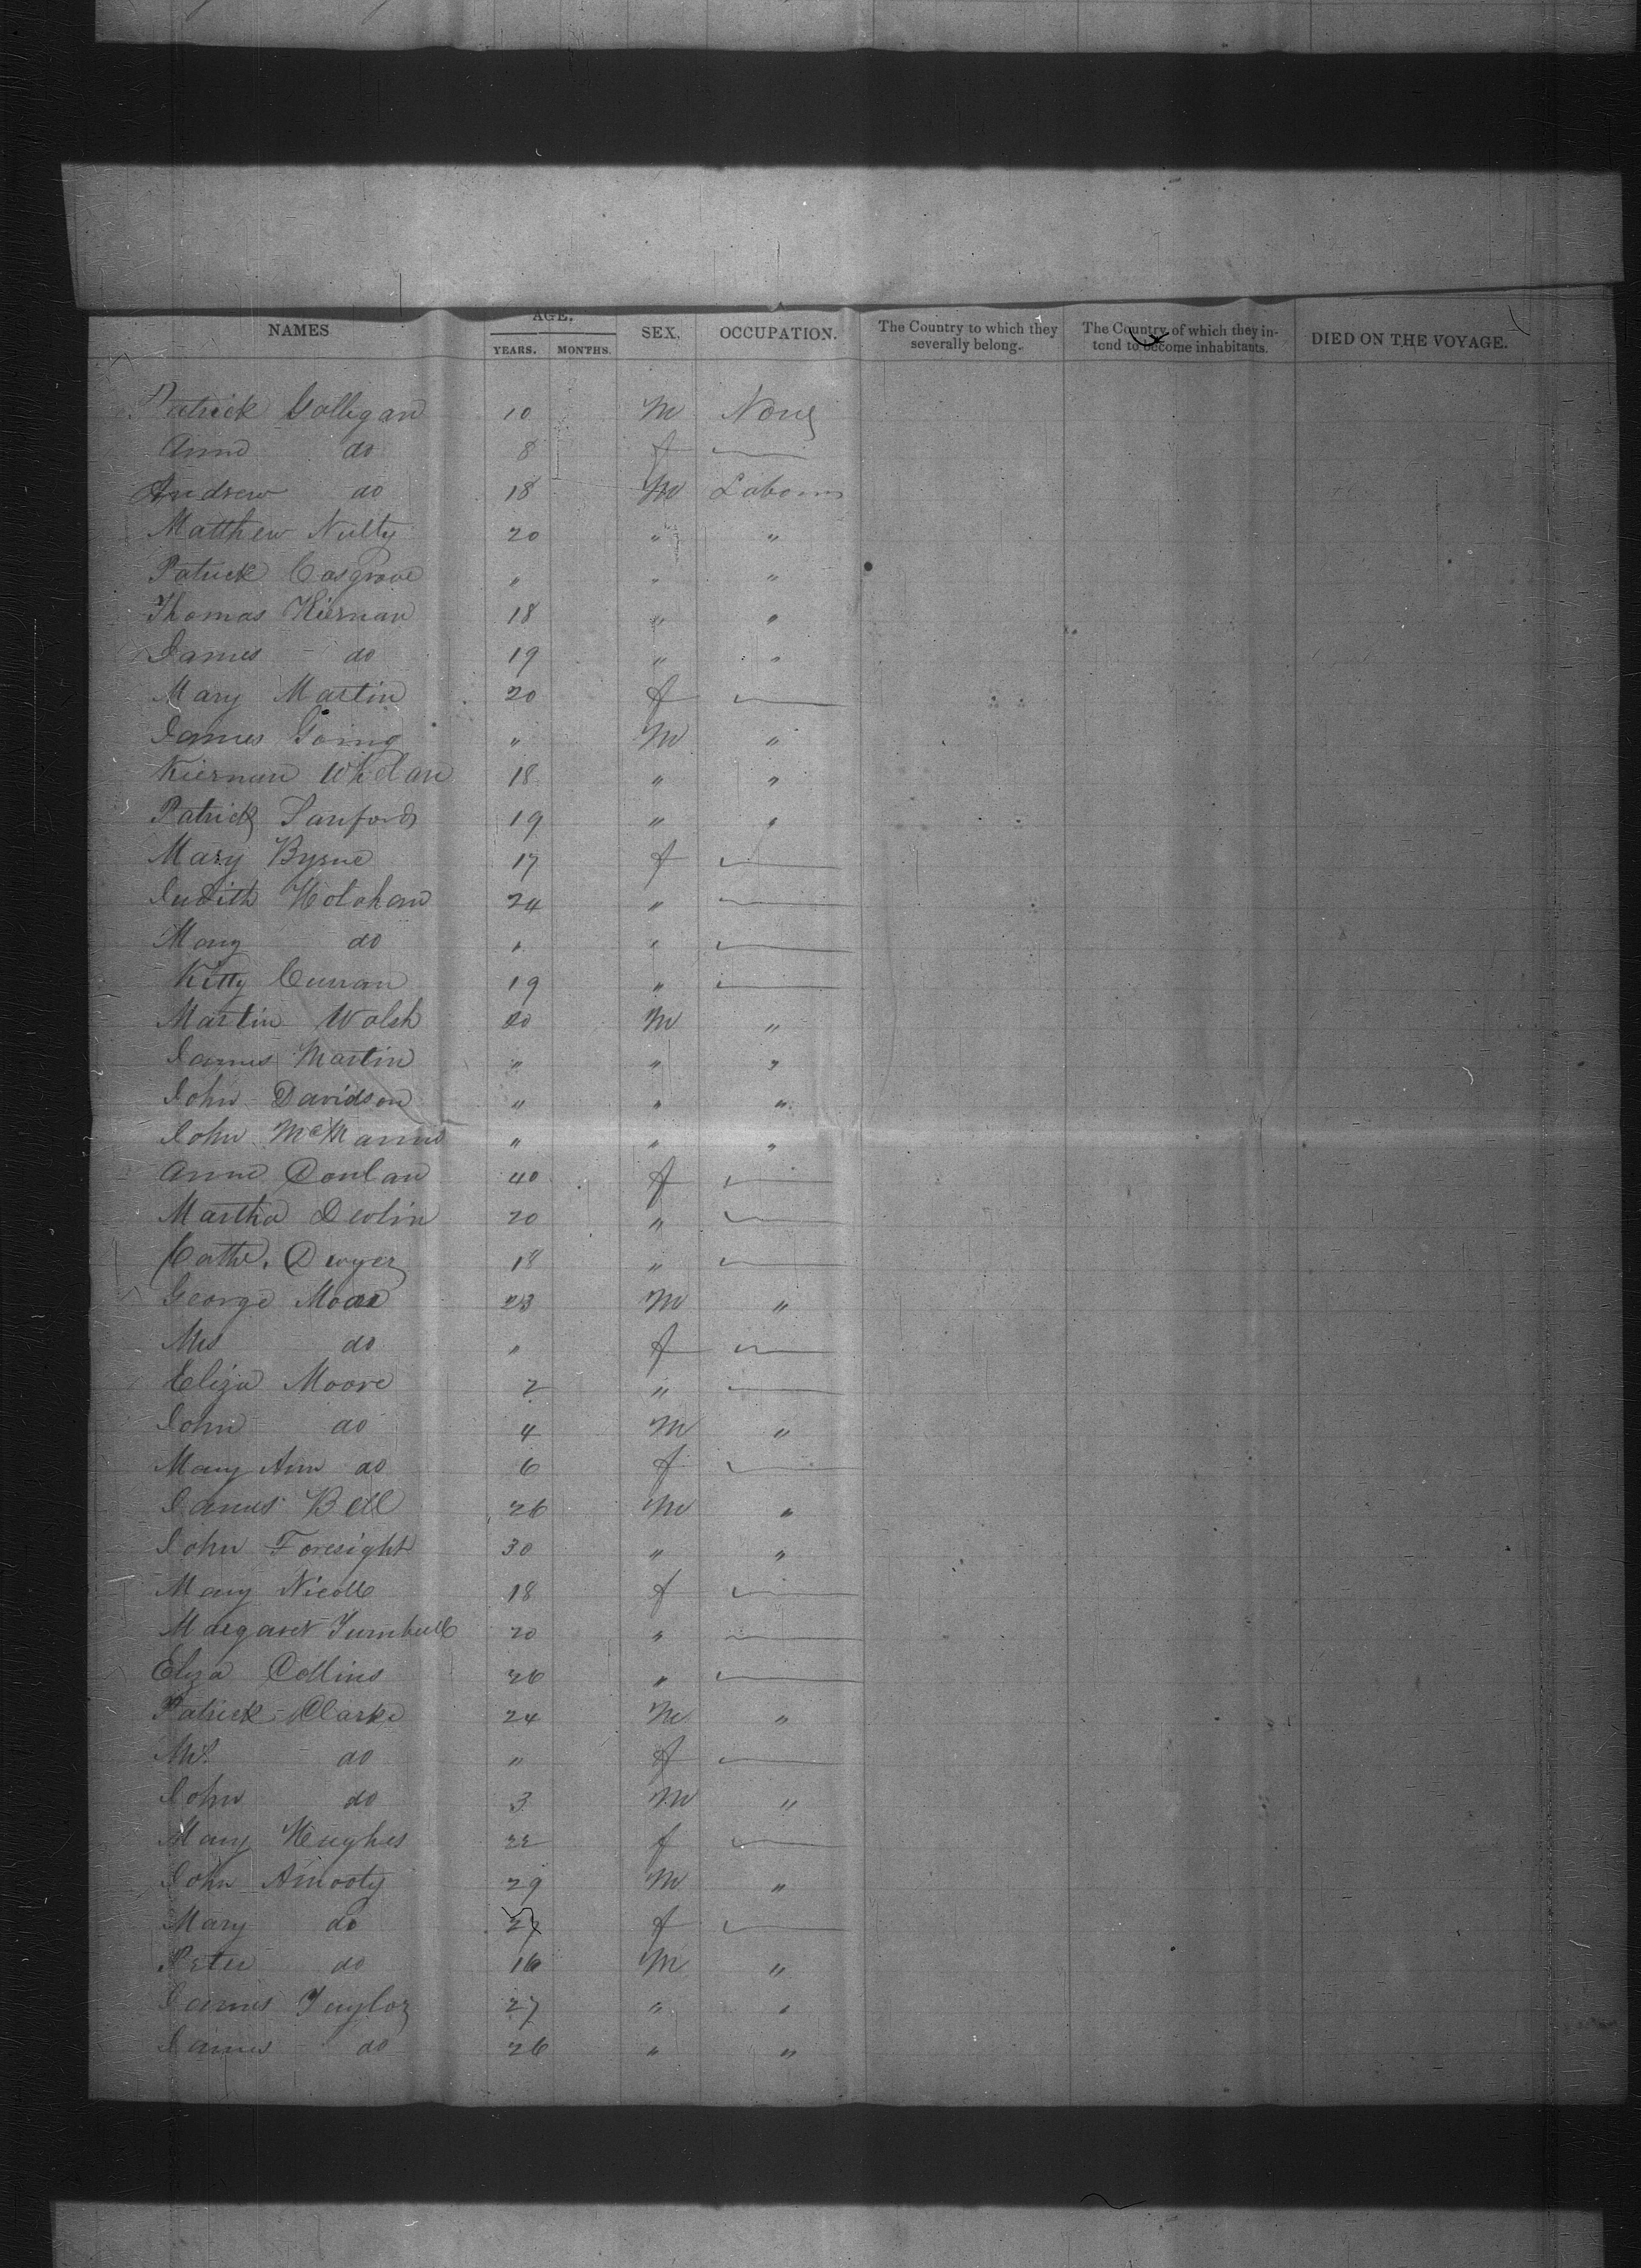 NAMES AGE. YEARS. MONTHS. SEX. OCCUPATION. The Country to which they severally belong. The Country of which they intend to become inhabitants. DIED ON THE VOYAGE.
Patrick Golligan 10 M None
Anne do 8 f
Andrew do 18 M Labourer
Matthew Nulty 20 " "
Patrick Cosgrove " " "
Thomas Kiernan 18 " "
James do 19 " "
Mary Martin 20 f
James Going " M "
Kiernan Whelan 18 " "
Patrick Sanford 19 " "
Mary Byrne 17 f
Judith Holohan 24 "
Mary do " "
Kitty Curran 19 "
Martin Walsh 20 M "
James Martin " " "
John Davidson " " "
John McManus " " "
Anne Conlan 40 f
Martha Devlin 20 "
Cathe. Dwyer 18 "
George Moore 23 M "
Mrs do " f
Eliza Moore 2 "
John do 4 M "
Mary Ann do 6 f
James Bell 26 M "
John Foresight 30 " "
Mary Nicoll 18 f
Margaret Turnbull 20 "
Eliza Collins 26 "
Patrick Clarke 24 M "
Mrs. do " f
John do 3 M "
Mary Hughes 22 f
John 29 M "
Mary do 27 f
Peter do 16 M "
James Taylor 27 " "
James do 26 " "